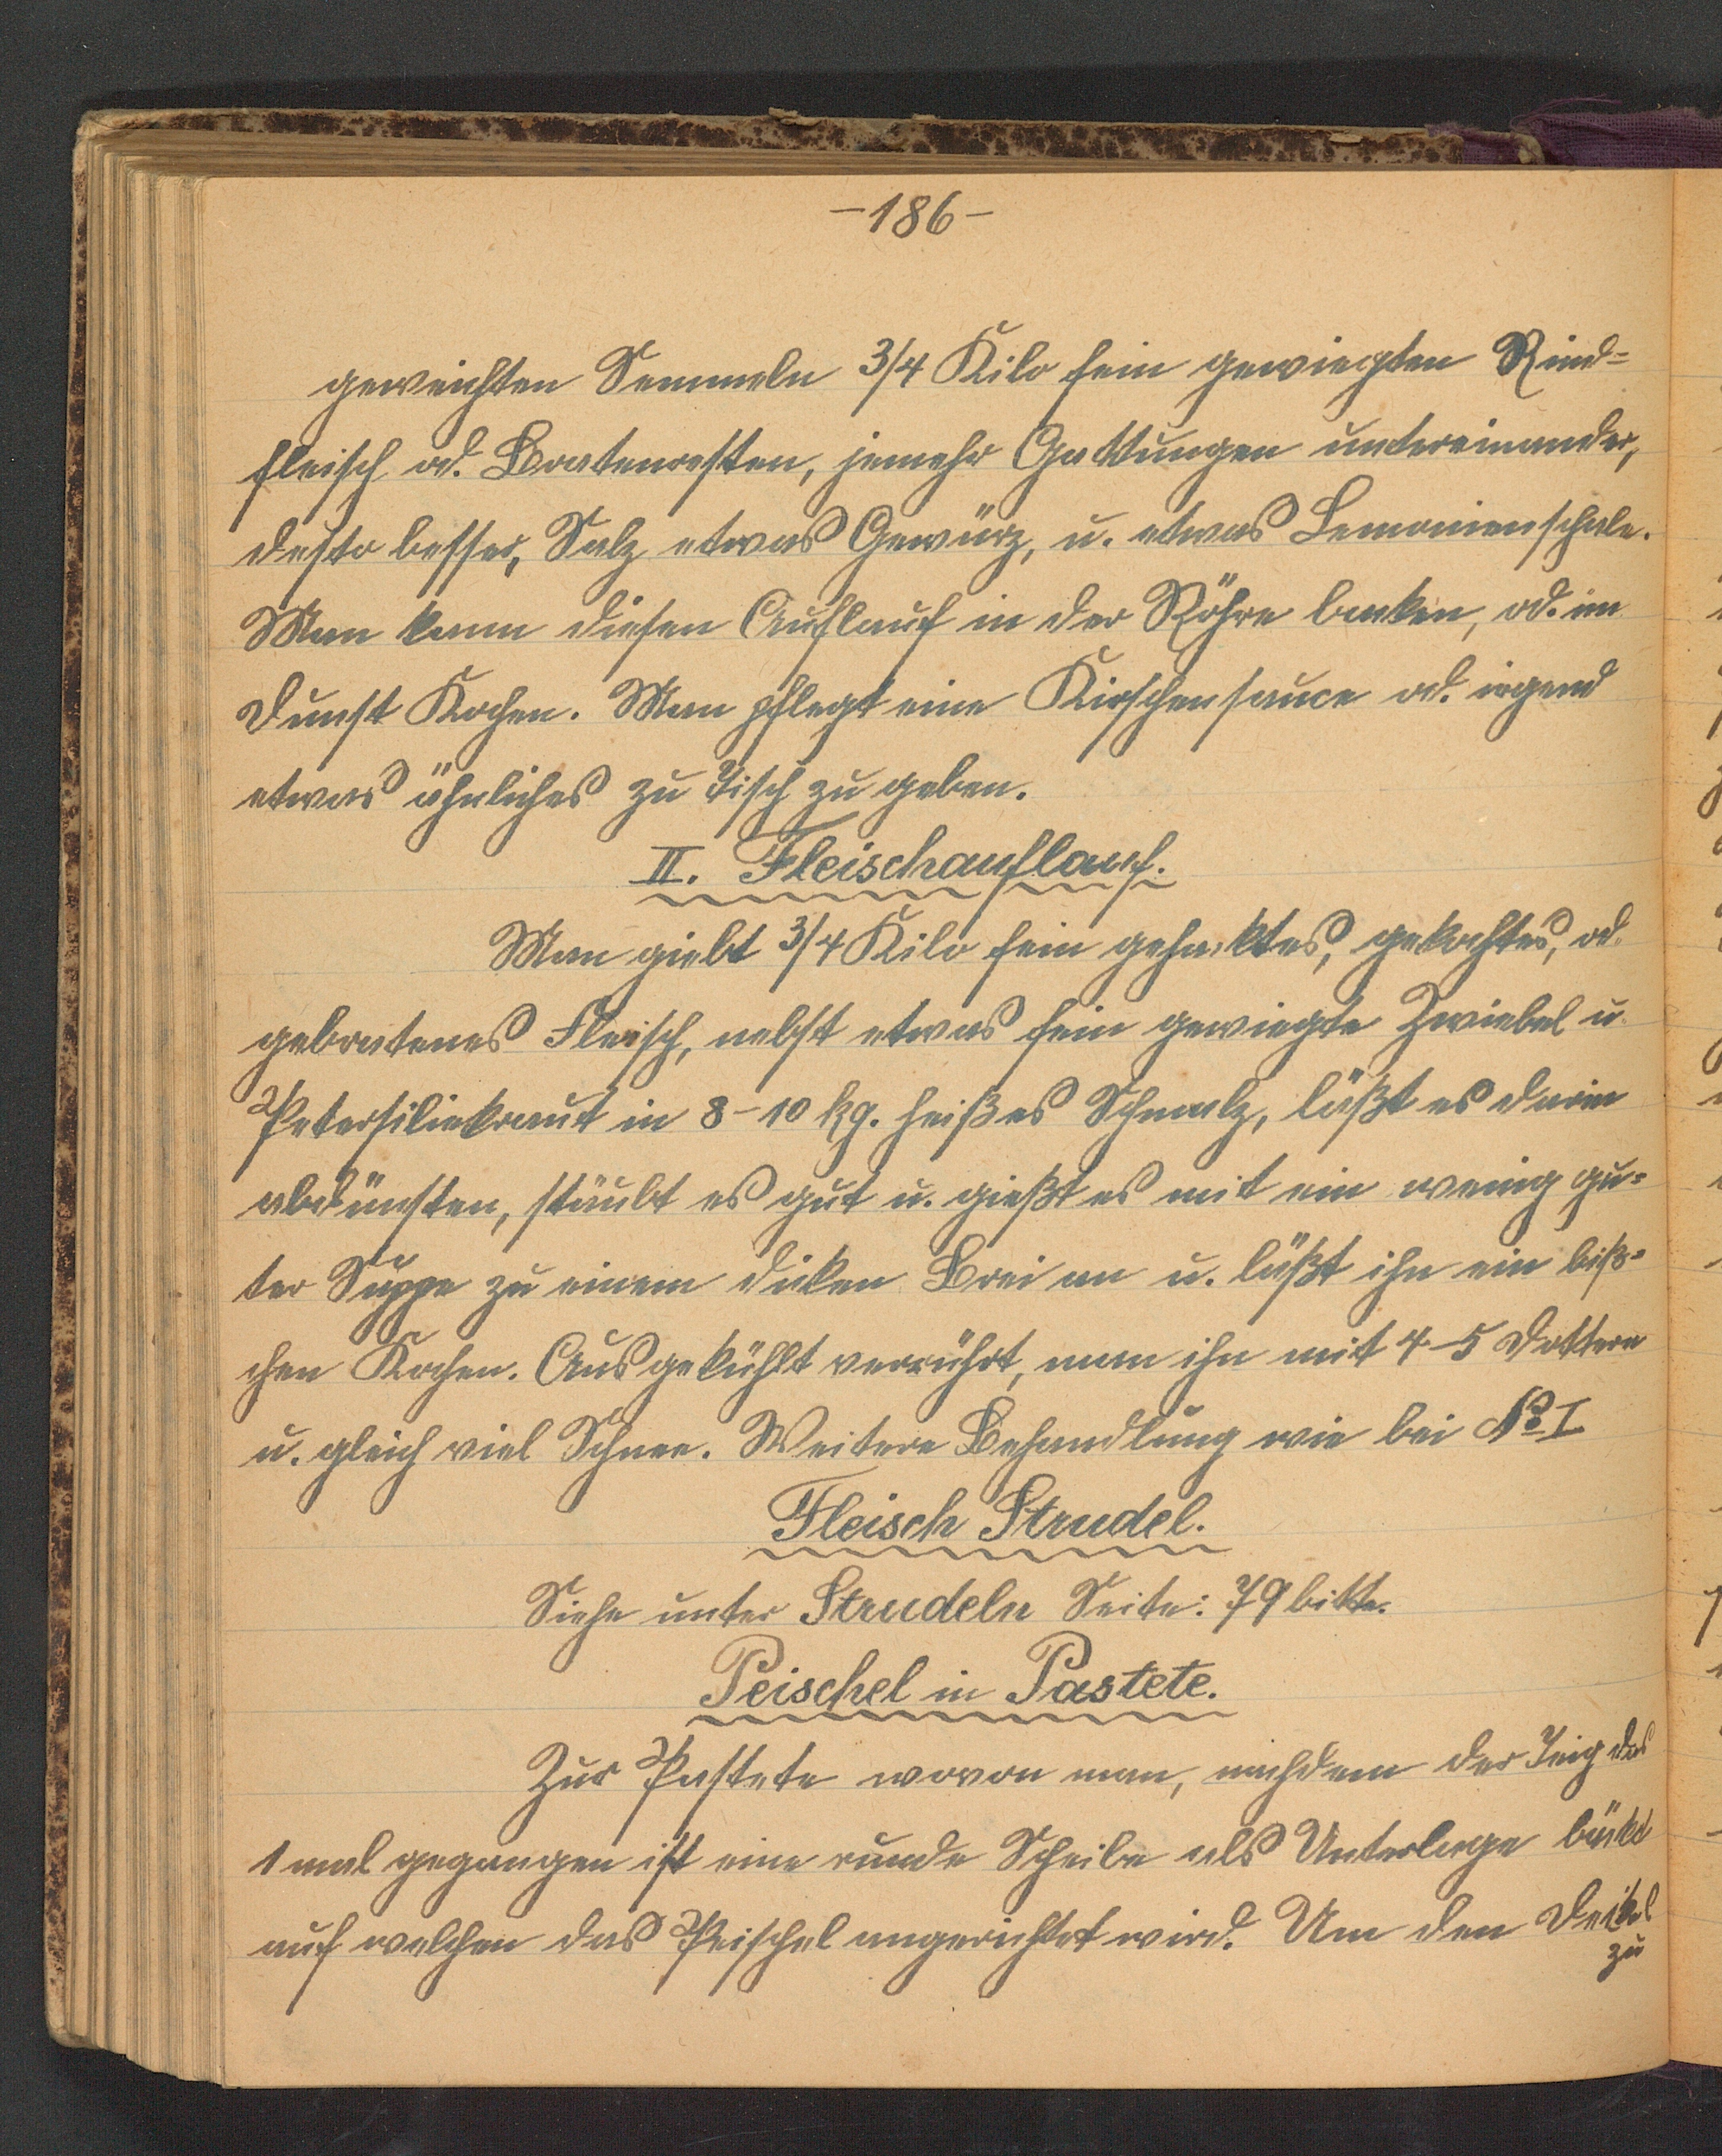 -186-
geweichten Semmeln 3/4 Kilo fein gewiegten Rind=
fleisch od. Bratenresten, jemehr Gattungen untereinander,
desto besser, Salz etwas Gewürz, u. etwas Lemonienschale.
Man kann diesen Auflauf in der Röhre backen, od. im
Dunst Kochen. Man pflegt eine Kirschensauce od. irgend
etwas ähnliches zu Tisch zu geben.
II. Fleischauflauf.
Man giebt 3/4 Kilo fein gehacktes, gekochtes, od.
gebratenes Fleisch, nebst etwas fein gewiegte Zwiebel u.
Petersiliekraut in 8-10 kg. heißes Schmalz, läßt es darin
abdünsten, stäubt es gut u. gießt es mit ein wenig gu=
ter Suppe zu einem dicken Brei an u. läßt ihn ein biß=
chen Kochen. Ausgekühlt verrührt, man ihn mit 4-5 Dottern
u. gleich viel Schnee. Weitere Behandlung wie bei No I
Fleisch Strudel.
Siehe unter Strudeln Seite: 79 bitte.
Peischel in Pastete.
Zur Pastete wovon man, nachdem der Teig das
1 mal gegangen ist eine runde Scheibe als Unterlage bäckt
auf welchen das Peischel angerichtet wird. Um den Deckel
zu